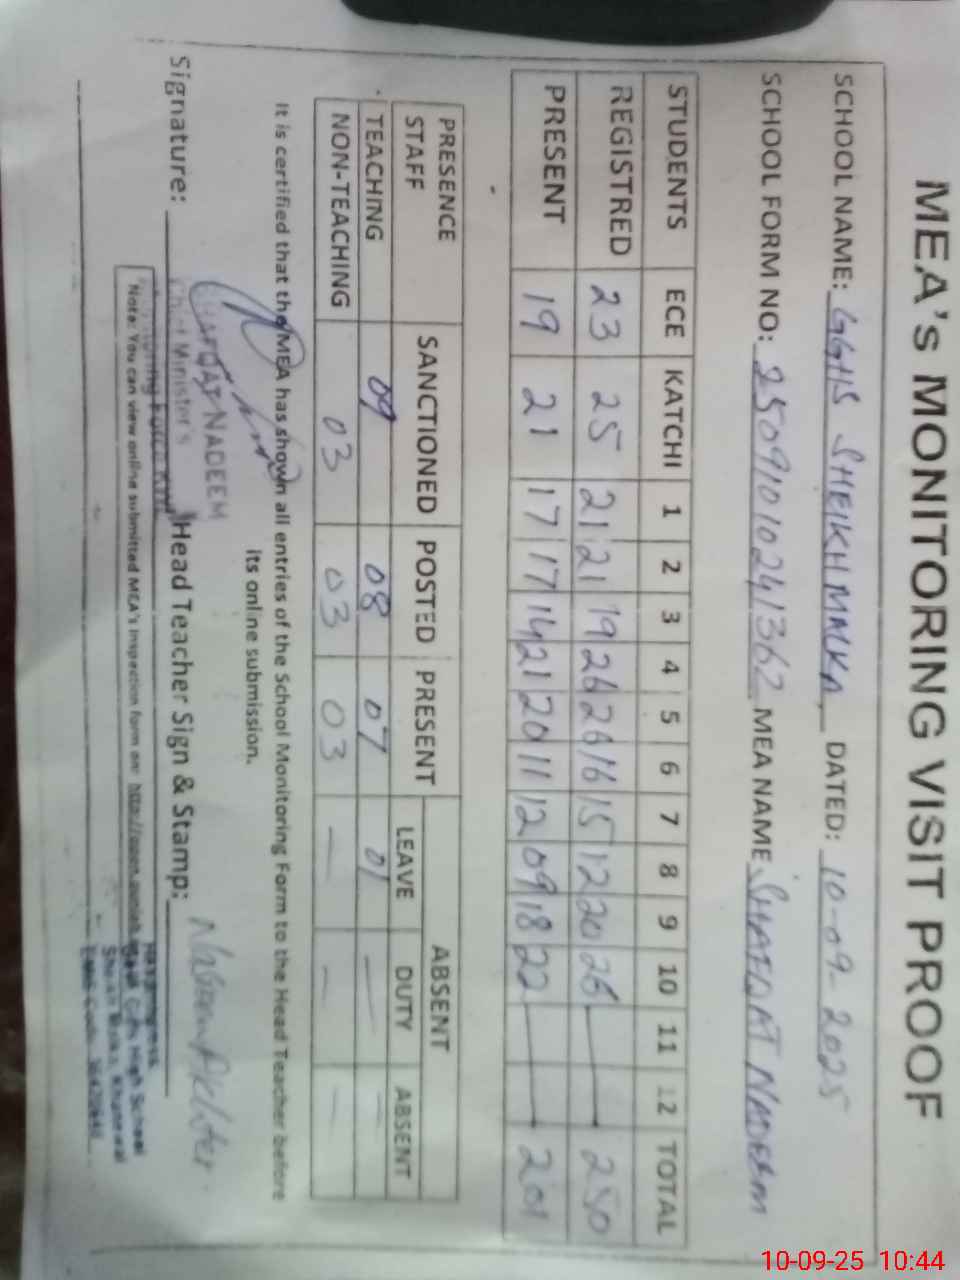 MEA's MONITORING VISIT PROOF
SCHOOL NAME: GGHS SHEIKH MALKA DATED: 10-09-2025
SCHOOL FORM NO: 250910102241362 MEA NAME SHAFQAT NADEEM
STUDENTS ECE KATCHI 1 2 3 4 5 6 7 8 9 10 11 12 TOTAL
REGISTRED 23 25 21 21 19 26 26 16 15 12 20 26 — — 250
PRESENT 19 21 17 17 14 21 20 11 12 09 18 22 — — 201
PRESENCE STAFF SANCTIONED POSTED PRESENT ABSENT
LEAVE DUTY ABSENT
TEACHING 09 08 07 01 — —
NON-TEACHING 03 03 03 — — —
It is certified that the MEA has shown all entries of the School Monitoring Form to the Head Teacher before
its online submission.
SHAFQAT NADEEM
Chief Minister's
Monitoring Force
Signature: Head Teacher Sign & Stamp: Nasem Akhter
*Note: You can view online submitted MEA's inspection form on: http://open.punjab
Headmistress
Govt. Girls High School
Sheikh Malka, Khanewal
EMIS Code:
10-09-25 10:44